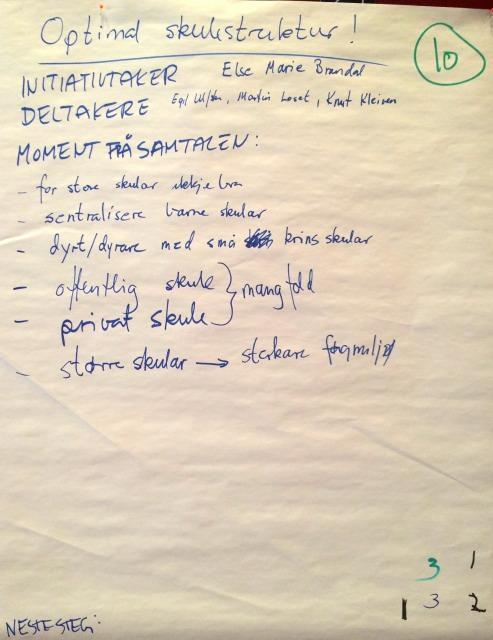 Optimal skulestruktur!
10
INITIATIVTAKER Else Marie Brandal
DELTAKERE Egil , Martin Loset, Knut Kleiven
MOMENT FRÅ SAMTALEN:
- for store skular ikkje bra
- sentralisere barneskular
- dyrt/dyrare med små krinsskular
- offentlig skule } mangfold
- privat skule
- større skular → sterkare fagmiljø
3 1
1 3 2
NESTE STEG: